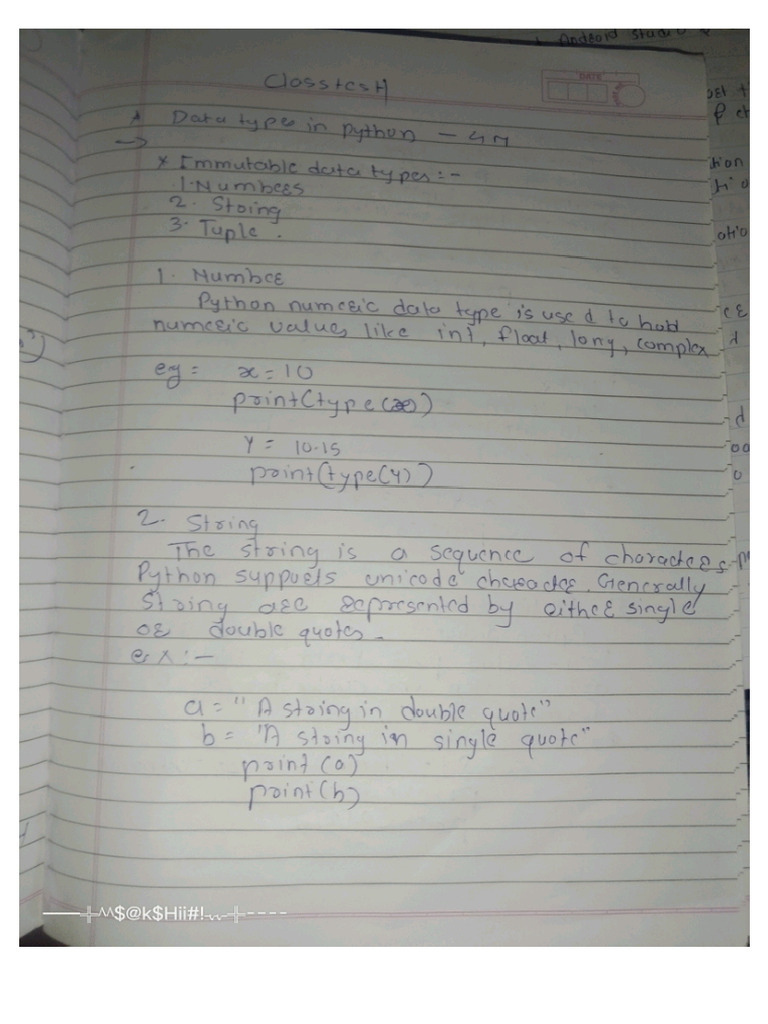 Android studio
Classtest
DATE
* Data types in python - 4M
→
* Immutable data types :-
1. Numbers
2. String
3. Tuple.
1. Number
Python numeric data type is used to hold
numeric values like int, float, long, complex
eg = x = 10
print(type(x))
Y = 10.15
print(type(y))
2. String
The string is a sequence of characters
Python supports unicode character. Generally
string are represented by either single
or double quotes.
ex :-
a = "A string in double quote"
b = 'A string in single quote"
print (a)
print(b)
^^$@k$Hii#!